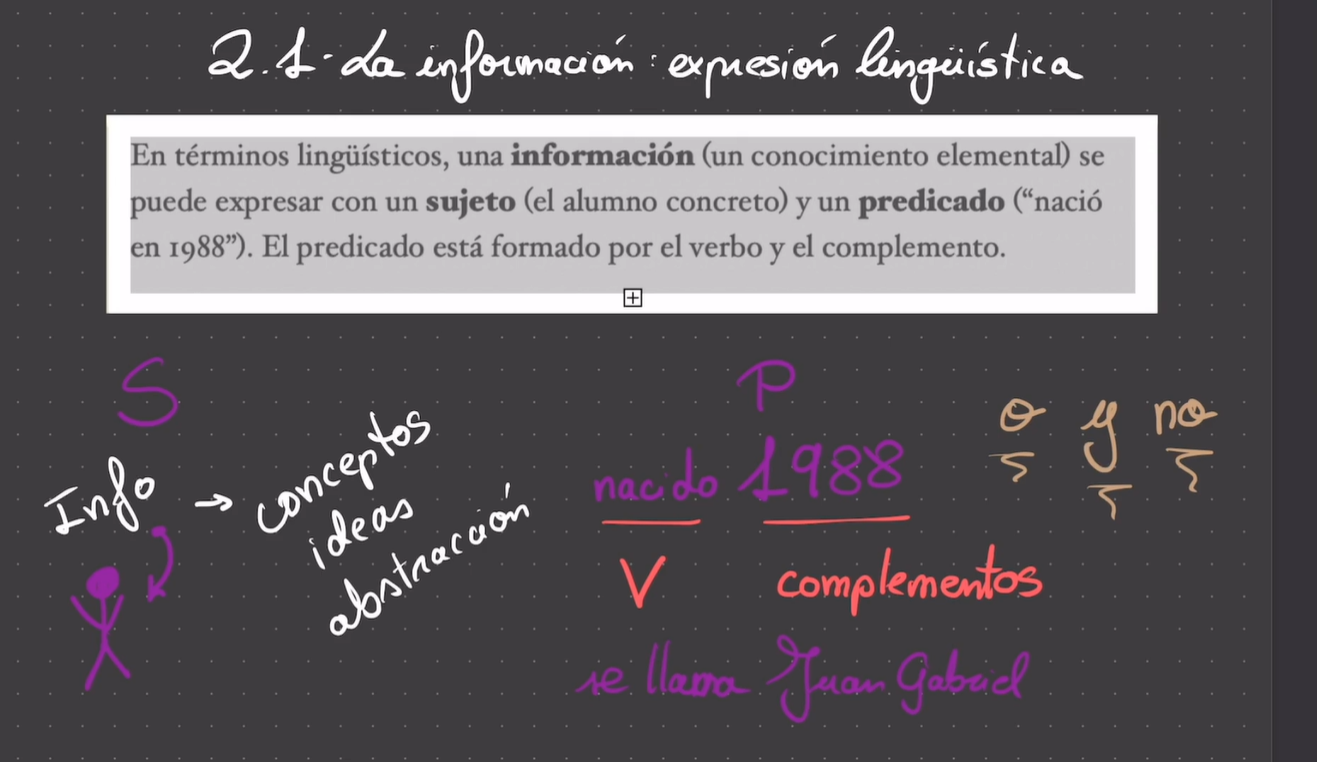 2.1. La información: expresión lingüística
En términos lingüísticos, una información (un conocimiento elemental) se
puede expresar con un sujeto (el alumno concreto) y un predicado (“nació
en 1988”). El predicado está formado por el verbo y el complemento.
S
Info → conceptos
ideas
abstracción
P
nacido 1988
V complementos
se llama Juan Gabriel
o y no